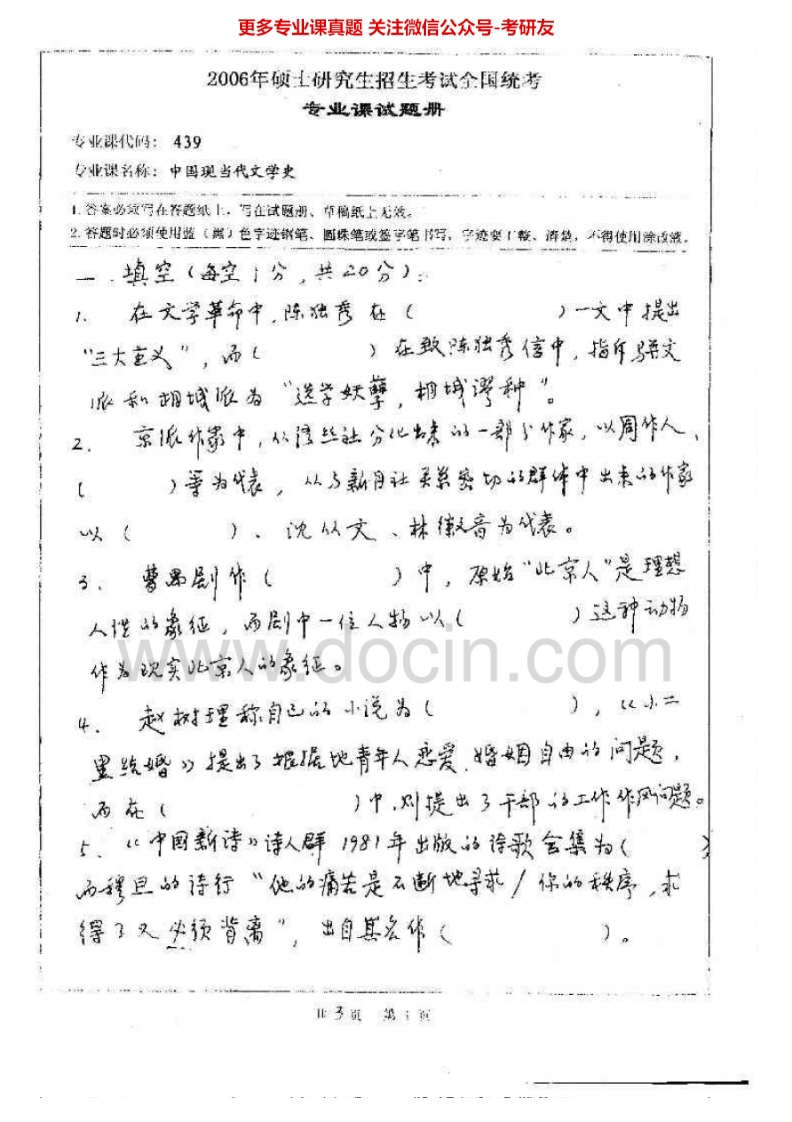 更多专业课真题 关注微信公众号-考研友
2006年硕士研究生招生考试全国统考
专业课试题册
专业课代码： 439
专业课名称： 中国现当代文学史
1.答案必须写在答题纸上，写在试题册、草稿纸上无效。
2.答题时必须使用蓝（黑）色字迹钢笔、圆珠笔或签字笔书写，字迹要工整、清楚，不得使用涂改液。
一、填空（每空1分，共20分）：
1. 在文学革命中，陈独秀在（ ）一文中提出
“三大主义”，而（ ）在致陈独秀信中，指斥骈文
派和桐城派为“选学妖孽，桐城谬种”。
2. 京派作家中，从语丝社分化出来的一部分作家，以周作人、
（ ）等为代表，从与新月社关系密切的群体中出来的作家
以（ ）、沈从文、林徽音为代表。
3. 曹禺剧作（ ）中，原始“北京人”是理想
人性的象征，而剧中一位人物以（ ）这种动物
作为现实北京人的象征。
www.docin.com
4. 赵树理称自己的小说为（ ），《小二
黑结婚》提出了根据地青年人恋爱、婚姻自由的问题，
而在（ ）中，则提出了干部的工作作风问题。
5、《中国新诗》诗人群1981年出版的诗歌合集为（ ）
而穆旦的诗行“他的痛苦是不断地寻求/你的秩序，求
得了又必须背离”，出自其名作（ ）。
共 3 页 第 1 页